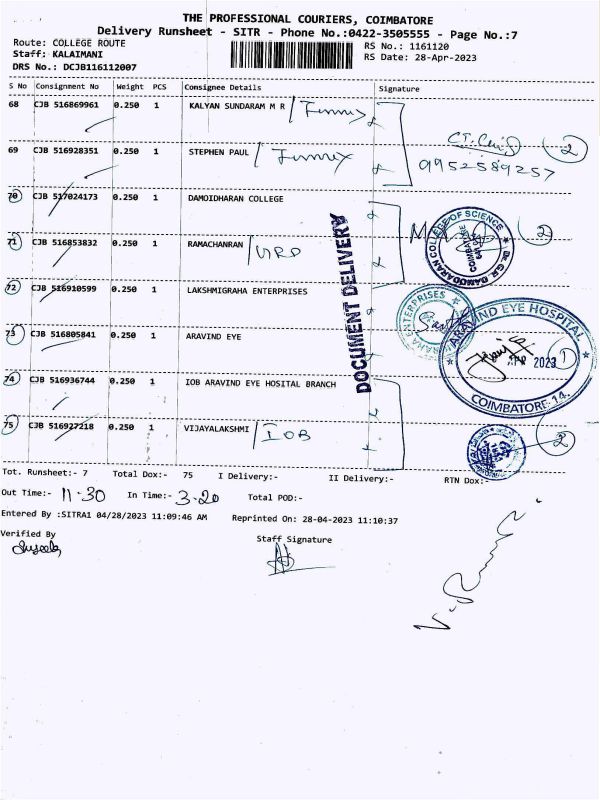 THE PROFESSIONAL COURIERS, COIMBATORE
Delivery Runsheet - SITR - Phone No.:0422-3505555 - Page No.:7
Route: COLLEGE ROUTE
Staff: KALAIMANI
DRS No.: DCJB116112007
RS No.: 1161120
RS Date: 28-Apr-2023
S No Consignment No Weight PCS Consignee Details Signature
68 CJB 516869961 0.250 1 KALYAN SUNDARAM M R
69 CJB 516928351 0.250 1 STEPHEN PAUL
9952589257 2
70 CJB 517024173 0.250 1 DAMOIDHARAN COLLEGE
71 CJB 516853832 0.250 1 RAMACHANRAN
2
Dr.G.R.DAMODARAN COLLEGE OF SCIENCE
COIMBATORE
DOCUMENT DELIVERY
72 CJB 516910599 0.250 1 LAKSHMIGRAHA ENTERPRISES
ENTERPRISES
73 CJB 516805841 0.250 1 ARAVIND EYE
ARAVIND EYE HOSPITAL
APR 2023 1
COIMBATORE. 14.
74 CJB 516936744 0.250 1 IOB ARAVIND EYE HOSITAL BRANCH
75 CJB 516927218 0.250 1 VIJAYALAKSHMI / IOB
2
Tot. Runsheet:- 7 Total Dox:- 75 I Delivery:- II Delivery:- RTN Dox:-
Out Time:- 11-30 In Time:- 3-20 Total POD:-
Entered By :SITRA1 04/28/2023 11:09:46 AM Reprinted On: 28-04-2023 11:10:37
Verified By
Staff Signature